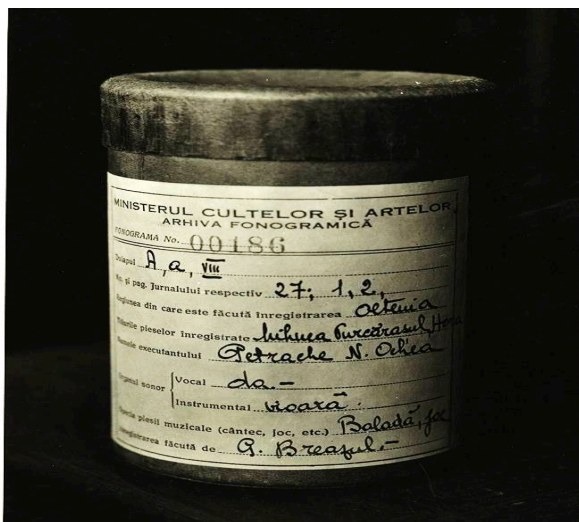 MINISTERUL CULTELOR ȘI ARTELOR
ARHIVA FONOGRAMICĂ
FONOGRAMA No. 00186
Dulapul A, a, VIII
No. și pag. Jurnalului respectiv 27; 1, 2,
Regiunea din care este făcută înregistrarea Oltenia
Titlurile pieselor înregistrate
Numele executantului Petrache N. Ochea
Organul sonor Vocal da.-
Instrumental vioară.
Specia piesii muzicale (cântec, joc, etc.) Baladă, joc
Înregistrarea făcută de G. Breazul.-